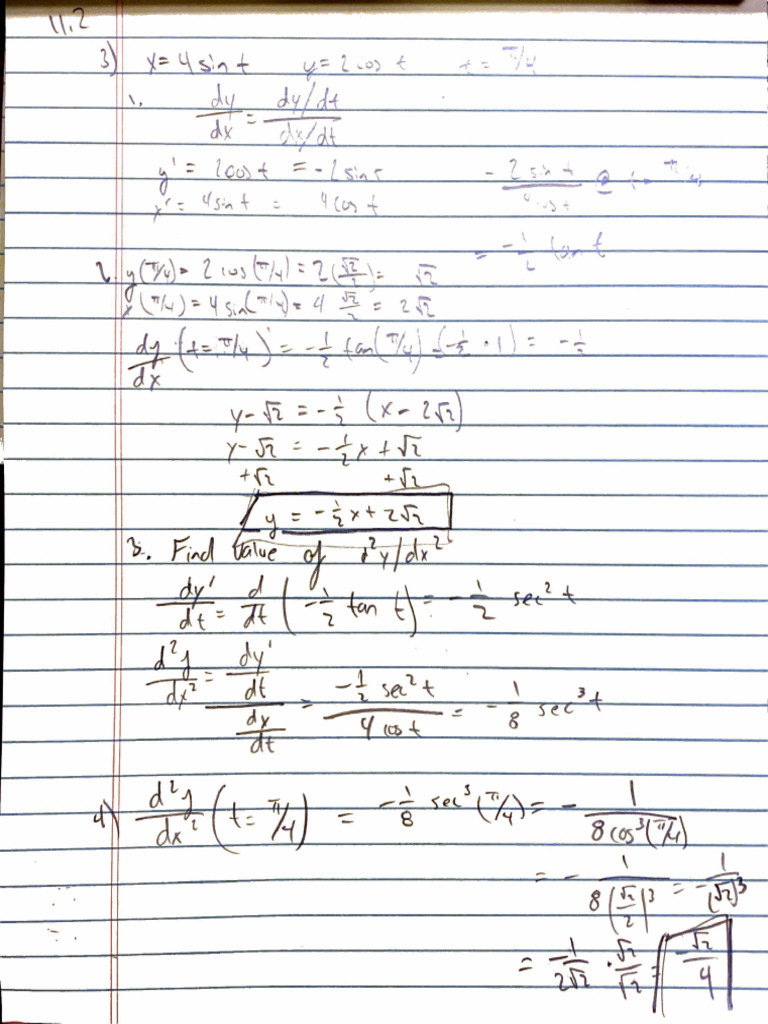 11.2
3) x = 4 sin t y = 2 cos t t = π/4
1. dy/dx = (dy/dt)/(dx/dt)
y' = 2cos t = -2 sin t - (2 sin t)/(4 cos t) @ t → π/4
x' = 4 sin t = 4 cos t
= -1/2 tan t
2. y(π/4) = 2 cos(π/4) = 2(√2/2) = √2
x(π/4) = 4 sin(π/4) = 4 √2/2 = 2√2
dy/dx (t = π/4) = -1/2 tan(π/4) (-1/2 · 1) = -1/2
y - √2 = -1/2 (x - 2√2)
y - √2 = -1/2 x + √2
+√2 +√2
y = -1/2 x + 2√2
3. Find value of d²y/dx²
dy'/dt = d/dt (-1/2 tan t) = -1/2 sec² t
d²y/dx² = (dy'/dt)/(dx/dt) = (-1/2 sec² t)/(4 cos t) = -1/8 sec³ t
4) d²y/dx² (t = π/4) = -1/8 sec³(π/4) = - 1/(8 cos³(π/4))
= - 1/(8(√2/2)³) = - 1/(√2)³
= -1/(2√2) · √2/√2 = -√2/4